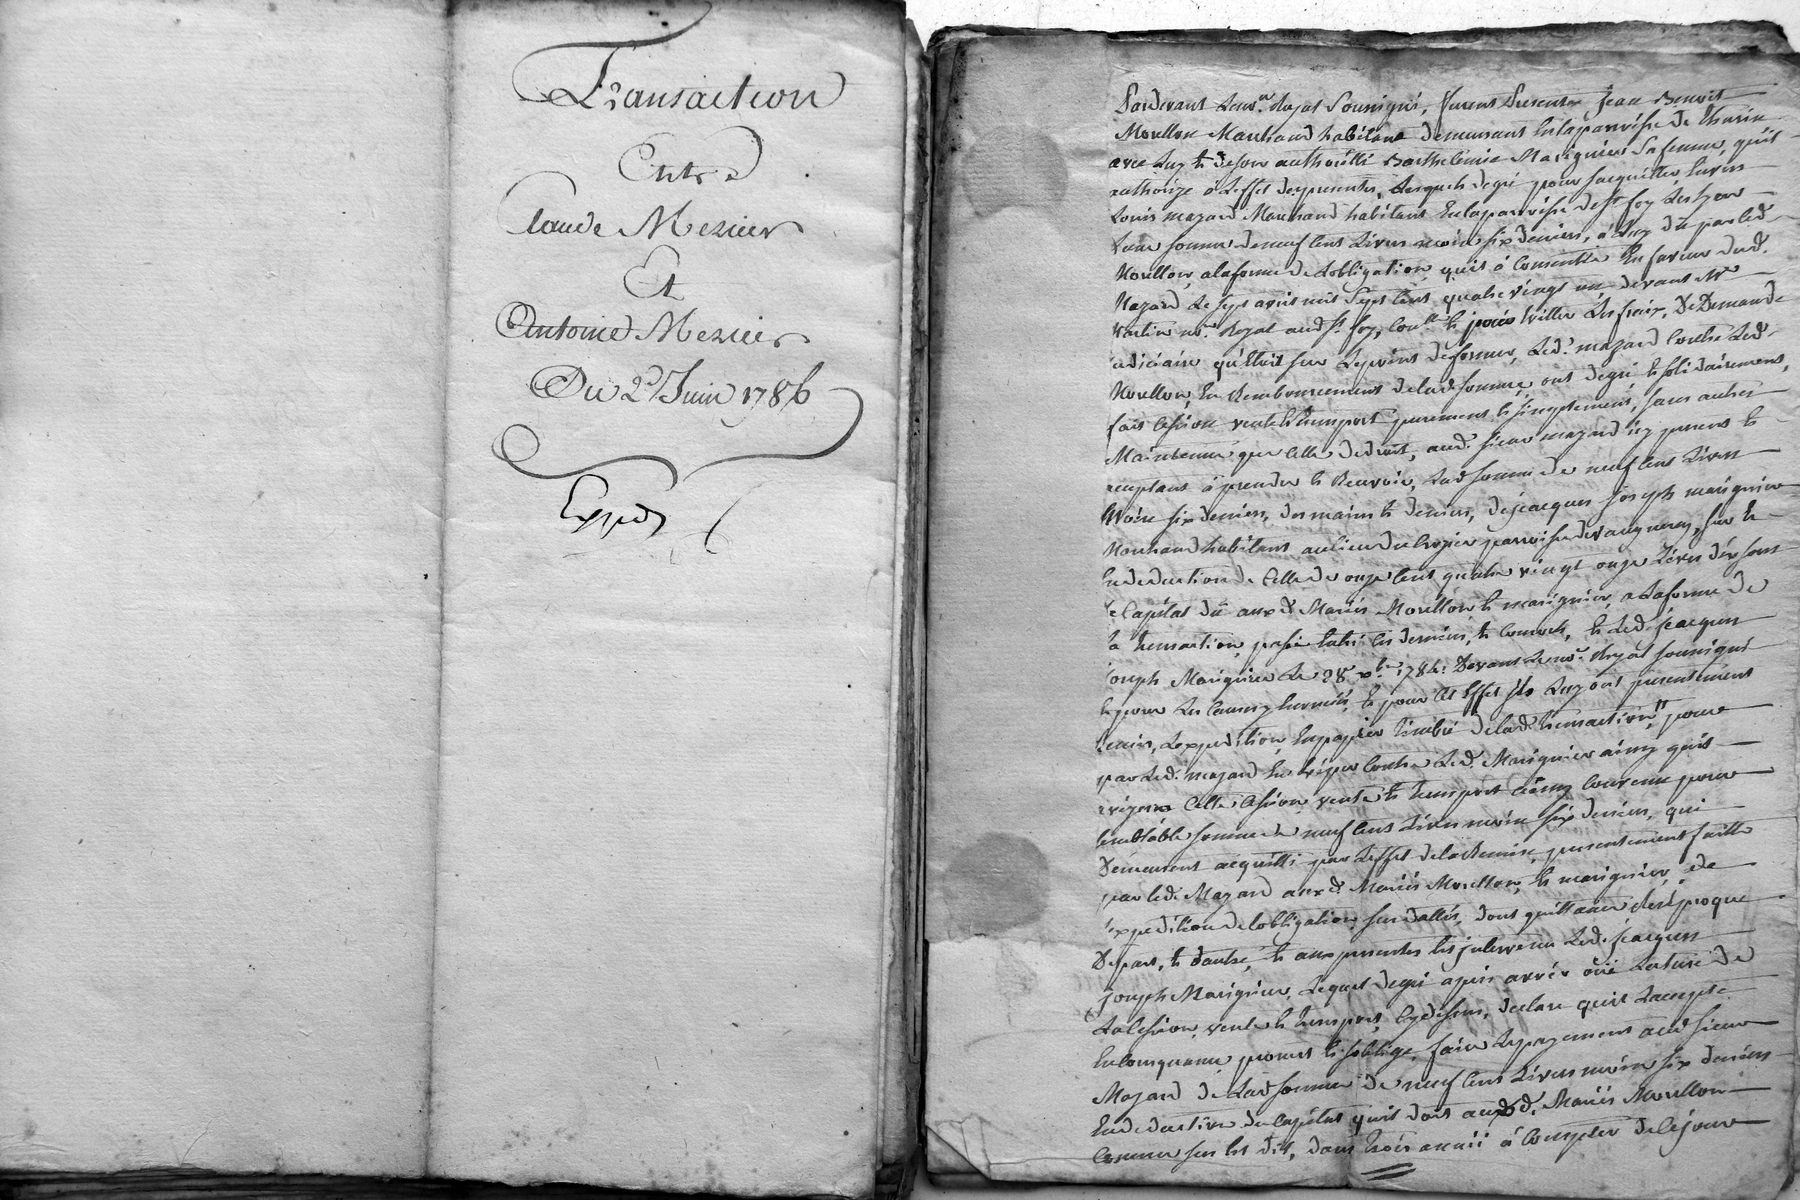 Transaction
Entre
Claude Mezier
Et
Antoine Mezier
Du 2 Juin 1786
Expédn
Pardevant Le no.re Royal Soussigné, furent Presents Jean Benoit
Morellon Marchand habitant demeurant En la parroisse de Thurin
avec Luy et de son authorité Barthelemie Marignier Sa femme, quil
authorize à L'effet des presentes, Lesquels de gré pour s'acquitter Envers
Louis mazard Marchand habitant En la parroisse de St. foy Les Lyon
d'une somme de neuf cens Livres moins six deniers, à Luy du par led.
Morellon, a la forme de L'obligation quil à Consentie En faveur dud.
Mazard, Le sept avril mil Sept Cent quatre vingt un devant Me
no.re Royal aud. St. foy, et Les fraix, De Demande
judiciaire qu'étoit sur Le point de former, Led. mazard Contre Led.
Morellon, En Remboursement de lad. somme, ont de gré et solidairement,
fait Cession vente et Transport purement et simplement, sans autres
Maintenüe que Celle de droit, aud. sieur mazard icy present et
acceptant à prendre et Recevoir, Lad. somme de neuf cens Livres
Moins six deniers, des mains et deniers, de jacques joseph marignier
Marchand habitant au lieu du parroisse de Vaugneray, sur et
En deduction de Celle de onze Cent quatre vingt onze Livres dix sous
de Capital dû aux d. Mariés Morellon et marignier, a la forme de
la transaction, passée Entre Ces derniers, et Led. jacques
joseph Marignier Le 28e x.bre 1784. Devant Le no.re Royal soussigné
et pour Les Causes y Enoncées, et pour Cet Effet ils Luy ont presentement
remis, L'expedition En papier timbré de lad. transaction, pour
par Led. mazard Contre Led. Marignier ainsy quil
avizera Cette Cession, vente et transport ainsy Convenu pour
semblable somme de neuf cens Livres moins six deniers, qui
Demeurent acquittés par L'effet de la Remise, presentement faitte
par led. Mazard aux d. Mariés Morellon, et marignier, de
L'expedition de L'obligation sus dattée, dont quittance réciproque
De part, et d'autre, et aux presentes Est intervenu Led. jacques
joseph Marignier, Lequel de gré apres avoir oüi Lecture de
La Cession, vente et transport, Cy dessus, declare quil L'accepte
En Consequence promet et s'oblige, faire Le payement aud. sieur
Mazard de Lad. somme de neuf cens Livres moins six deniers
En deduction du Capital quil doit aux d. Mariés Morellon
Comme sus est dit, dans trois année à Compter de Ce jour